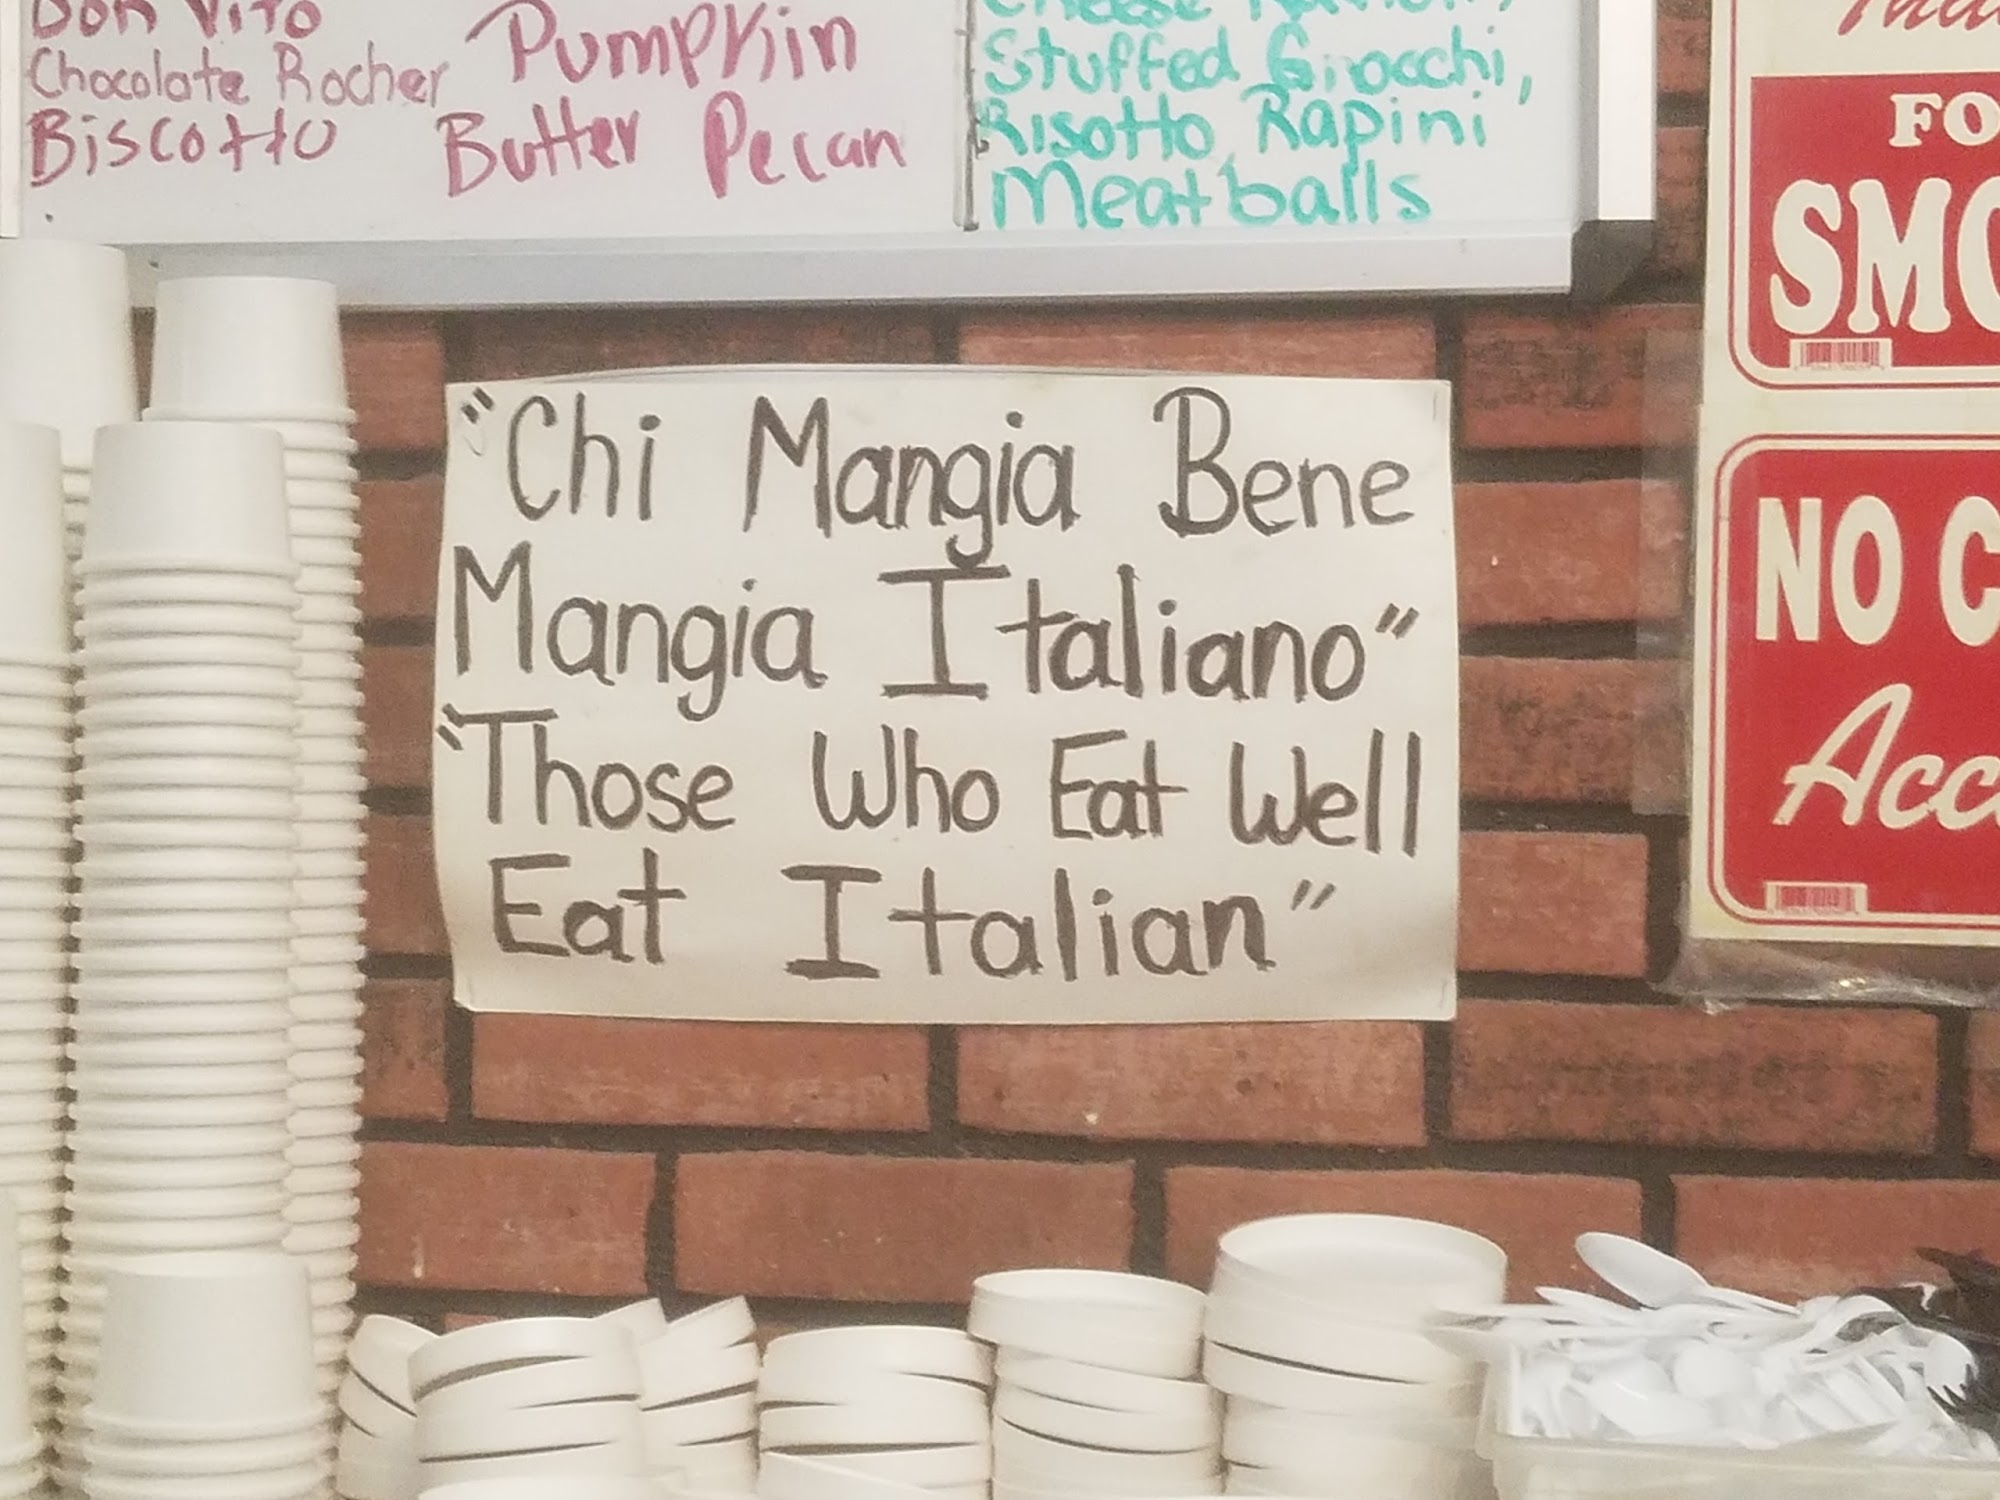 Don Vito
Chocolate Rocher
Biscotto
Pumpkiin
Butter Pecan
Cheese
Stuffed Gnocchi,
Risotto, Rapini
Meatballs
"Chi Mangia Bene
Mangia Italiano"
"Those Who Eat Well
Eat Italian"
FO
SMO
NO C
Acc